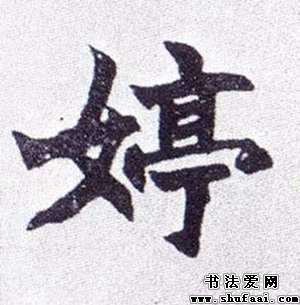 婷
书法爱网
www.shufaai.com